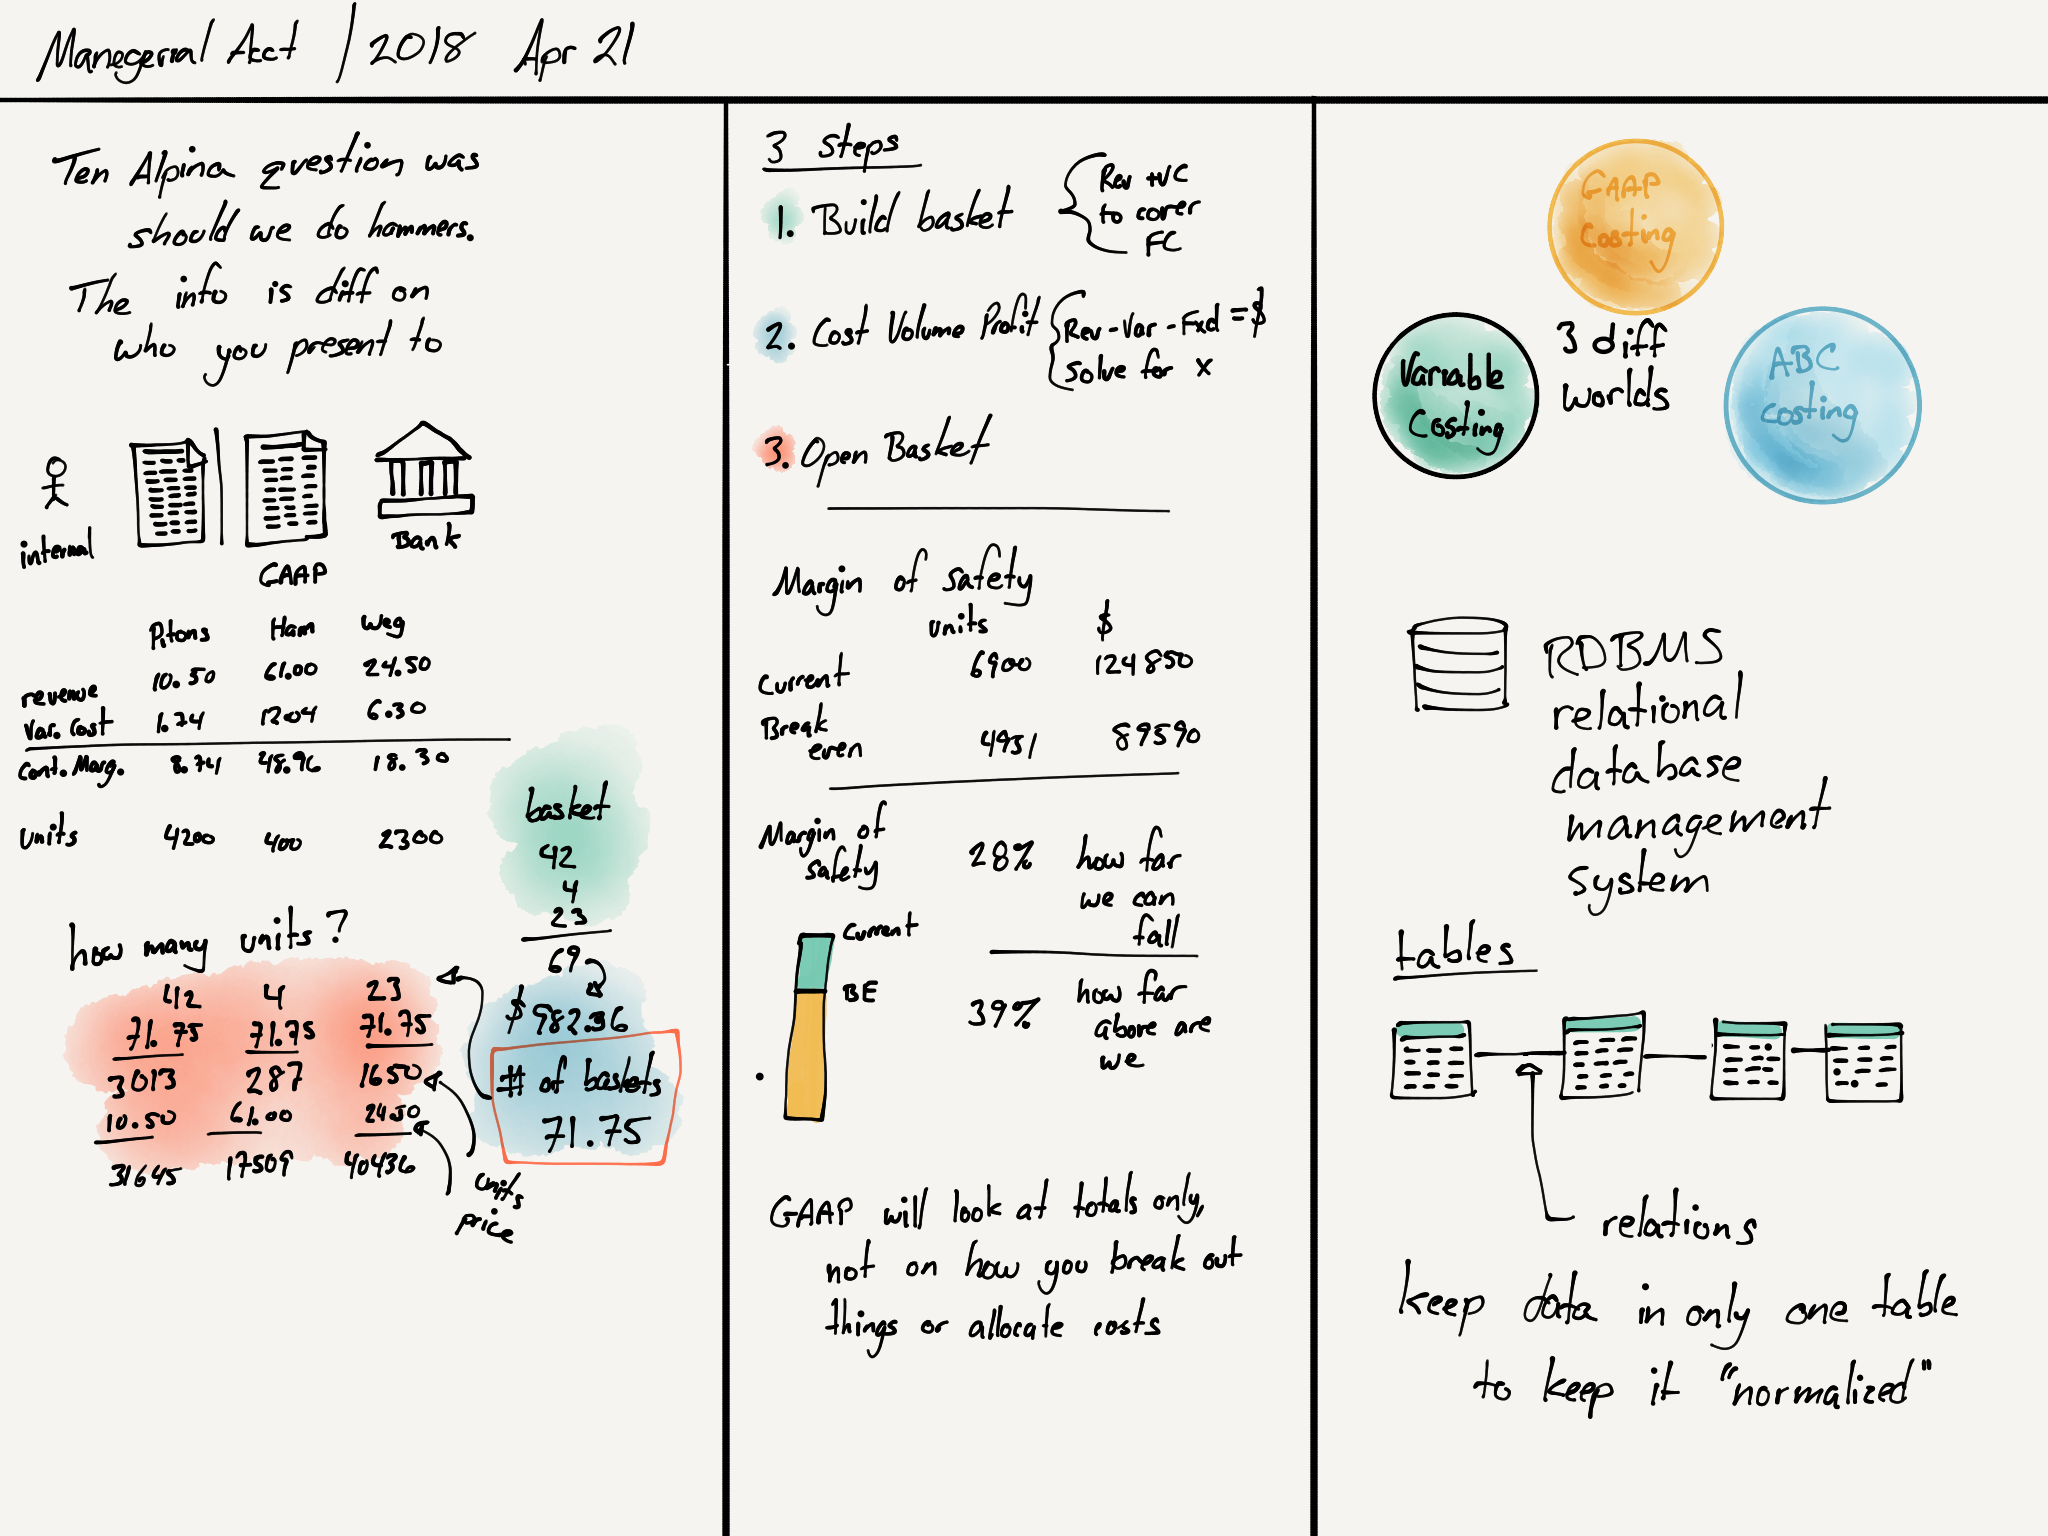 Manegerial Acct / 2018 Apr 21
Ten Alpina question was
should we do hammers.
The info is diff on
who you present to
internal
GAAP
Bank
Pitons Ham Weg
revenue 10.50 61.00 24.50
Var. Cost 1.74 12.04 6.30
Cont. Marg. 8.741 48.96 18.30
units 4200 400 2300
basket
42
4
23
69
$982.36
# of baskets
71.75
how many units?
42 4 23
71.75 71.75 71.75
3013 287 1650
10.50 61.00 24.50
31645 17509 40436
units
price
3 Steps
1. Build basket
Rev + VC
to cover
FC
2. Cost Volume Profit
Rev - Var - Fxd = $
solve for x
3. Open Basket
Margin of safety
units $
Current 6900 124850
Break
even 4951 89590
Margin of
safety
28% how far
we can
fall
Current
BE
39% how far
above are
we
GAAP will look at totals only,
not on how you break out
things or allocate costs
GAAP
Costing
Variable
Costing
3 diff
worlds
ABC
costing
RDBMS
relational
database
management
system
tables
relations
keep data in only one table
to keep it "normalized"